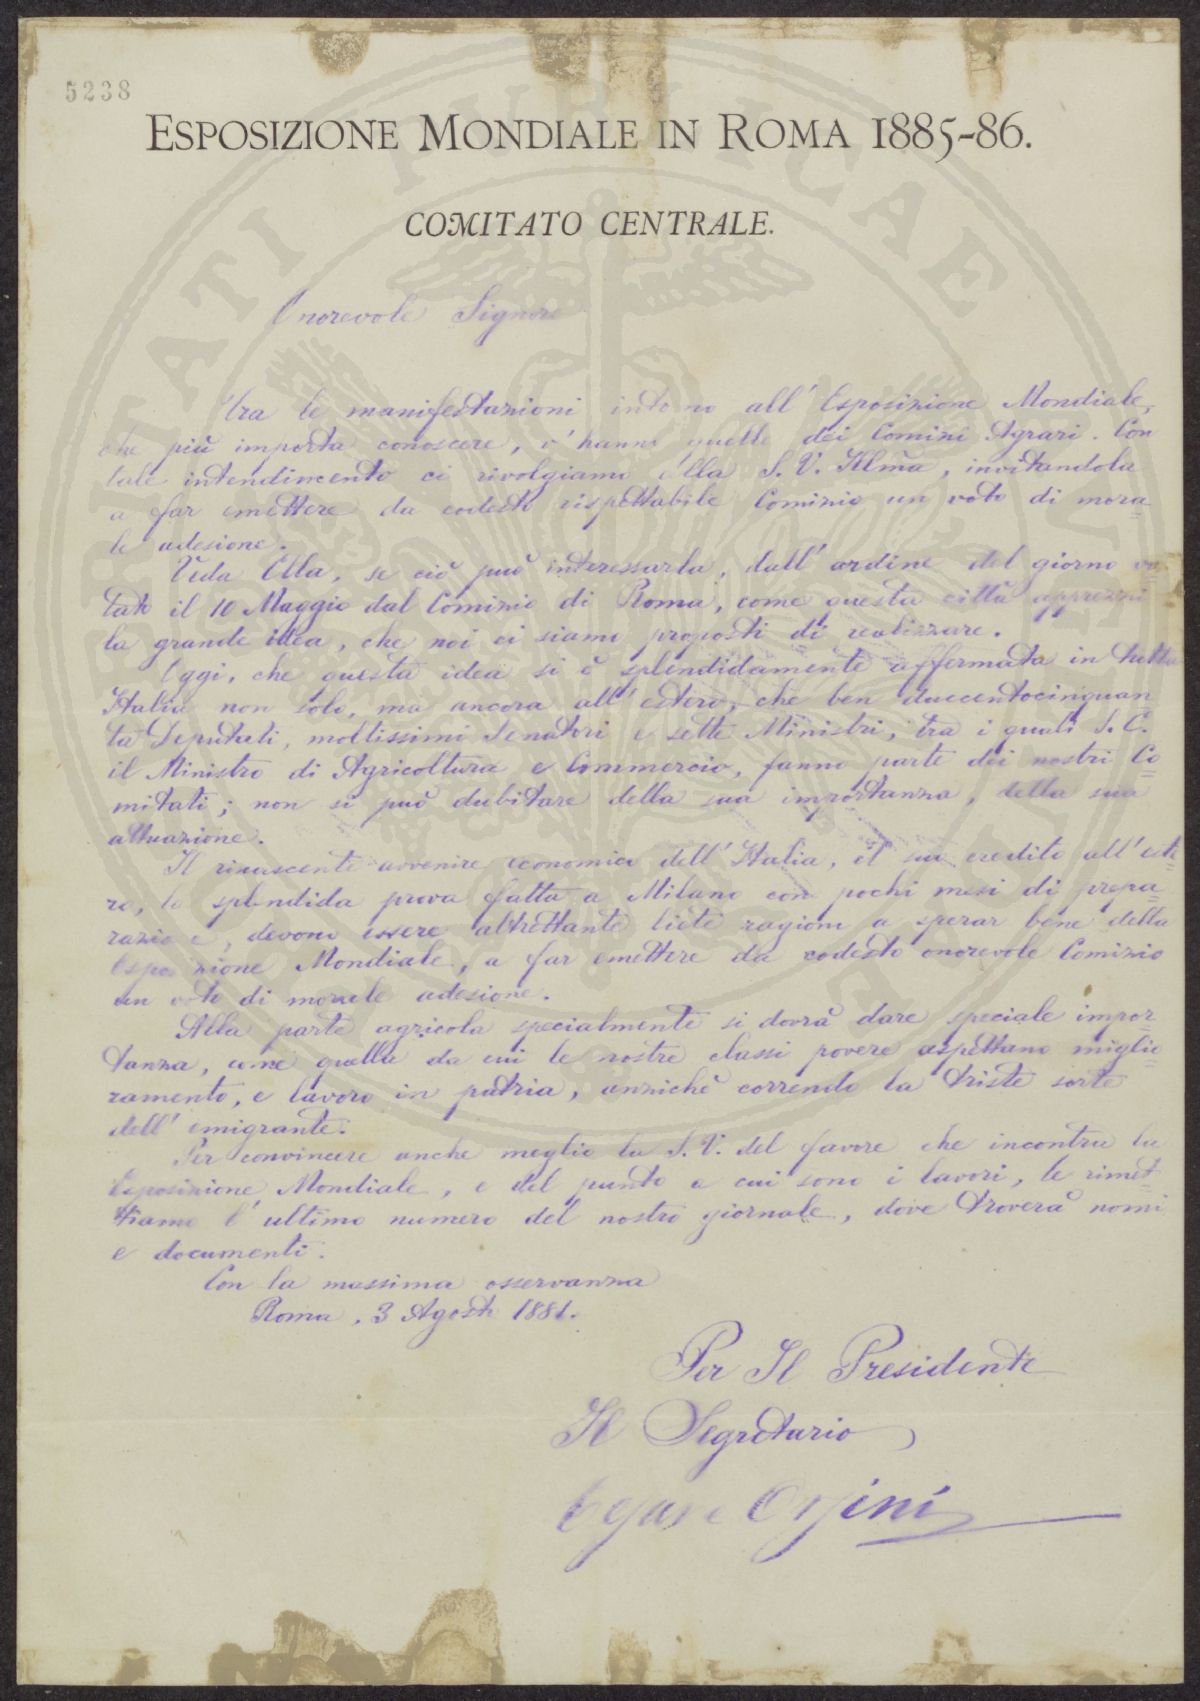 5238
ESPOSIZIONE MONDIALE IN ROMA 1885-86.
COMITATO CENTRALE.
Onorevole Signore
Tra le manifestazioni intorno all'Esposizione Mondiale,
che più importa conoscere, v'hanno quelle dei Comizi Agrari. Con
tale intendimento ci rivolgiamo alla S. V. Illma, invitandola
a far emettere da codesto rispettabile Comizio un voto di mora=
le adesione.
Veda Ella, se ciò può interessarla, dall'ordine del giorno vo=
tato il 10 Maggio dal Comizio di Roma, come questa città apprezzi
la grande idea, che noi ci siamo proposti di realizzare.
Oggi, che questa idea si è splendidamente affermata in tutta
Italia non solo, ma ancora all'estero, che ben duecentocinquan
ta Deputati, moltissimi Senatori e sette Ministri, tra i quali S. E.
il Ministro di Agricoltura e Commercio, fanno parte dei nostri Co=
mitati; non si può dubitare della sua importanza, della sua
attuazione.
Il rinascente avvenire economico dell'Italia, il suo credito all'este=
ro, la splendida prova fatta a Milano con pochi mesi di prepa=
razione, devono essere altrettante liete ragioni a sperar bene della
Esposizione Mondiale, a far emettere da codesto onorevole Comizio
un voto di morale adesione.
Alla parte agricola specialmente si dovrà dare speciale impor=
tanza, come quella da cui le nostre classi povere aspettano miglio=
ramento, e lavoro in patria, anzichè correndo la triste sorte
dell'emigrante.
Per convincere anche meglio la S. V. del favore che incontra la
Esposizione Mondiale, e del punto a cui sono i lavori, le rimet=
tiamo l'ultimo numero del nostro giornale, dove troverà nomi
e documenti.
Con la massima osservanza
Roma, 3 Agosto 1881.
Per Il Presidente
Il Segretario
Orsini